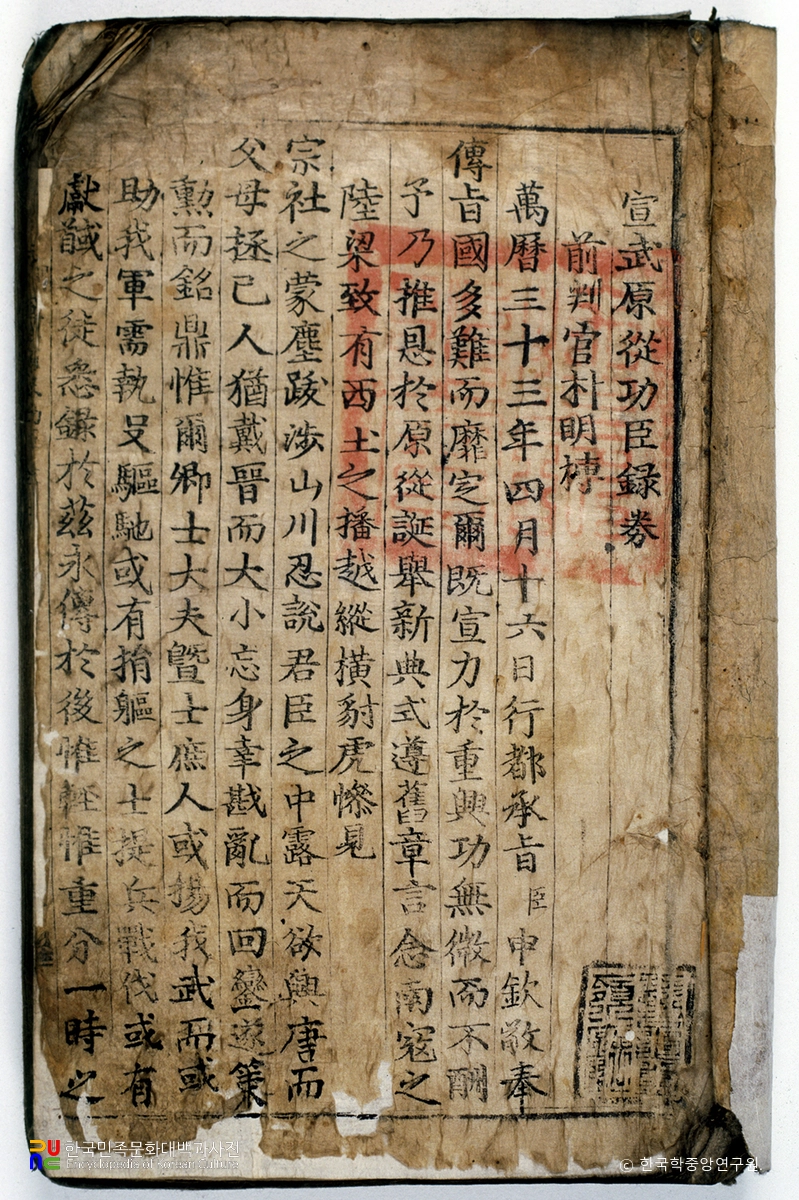 宣武原從功臣録券
前判官朴明榑
萬曆三十三年四月十六日行都承旨臣申欽敬奉
傳旨國多難而靡定爾旣宣力於重興功無微而不酬
予乃推恩於原從誕舉新典式遵舊章言念南寇之
陸梁致有西土之播越縱橫豺虎慘見
宗社之蒙塵跋涉山川忍說君臣之中露天欲興唐而
父母拯己人猶戴晉而大小忘身幸戡亂而回鑾遂策
勳而銘鼎惟爾卿士大夫曁士庶人或揚我武而或
助我軍需執殳驅馳或有捐軀之士提兵戰伐或有
獻馘之徒悉錄於茲永傳於後惟輕惟重分一時之
한국민족문화대백과사전
Encyclopedia of Korean Culture
© 한국학중앙연구원